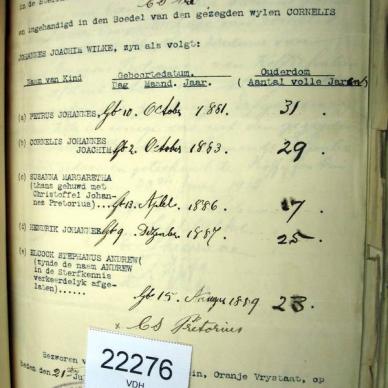 in de Sterf
en ingehandigd in den Boedel van den gezegden wylen CORNELIS
JOHANNES JOACHIM WILKE, zyn als volgt:
Naam van Kind Geboortedatum. Ouderdom
Dag Maand. Jaar. ( Aantal volle Jaren)
(a) PETRUS JOHANNES, Gb 10. October 1881. 31 .
(b) CORNELIS JOHANNES
JOACHIM Gb 2. October 1883. 29 .
(c) SUSANNA MARGARETHA
(thans gehuwd met
Christoffel Johan-
nes Pretorius).... Gb 13. April. 1886 .
(d) HENDRIK JOHANNES Gb 9. 1887 . 25 .
(e) ELCOCK STEPHANUS ANDREW(
(zynde de naam ANDREW
in de Sterfkennis
verkeerdelyk afge-
laten)...... Gb 15. 1889 . 23 .
x CS Pretorius
Gezworen v in, Oranje Vrystaat, op
heden den 21ste Ju
22276
VDH